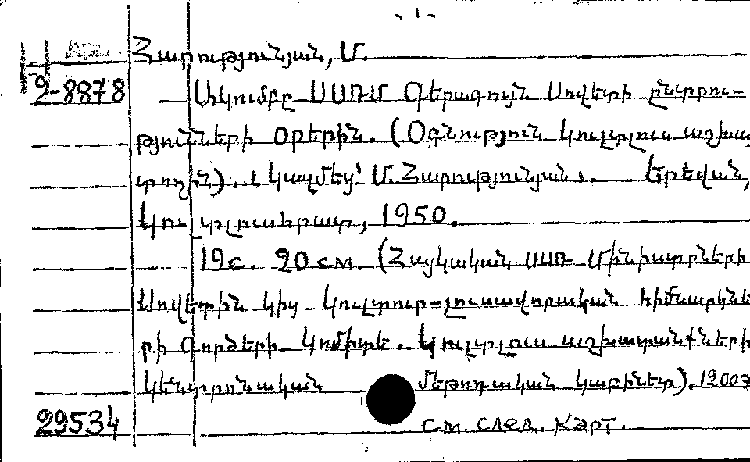 - 1 -
Հարությունյան, Մ.
2-8878 Ակումբը ՍՍՌՄ Գերագույն Սովետի ընտրու-
թյունների օրերին. (Օգնություն կուլտլուս աշխա
տողին). Կազմեց՝ Մ. Հարությունյան. Երևան,
Կուլտլուսհրատ, 1950.
19с. 20см. (Հայկական ՍՍՌ Մինիստրների
Սովետին կից կուլտուր-լուսավորական հիմնարկնե
րի Գործերի Կոմիտե. Կուլտլուս աշխատանքների
կենտրոնական մեթոդական կաբինետ). 1200э
29534 см. след. карт.